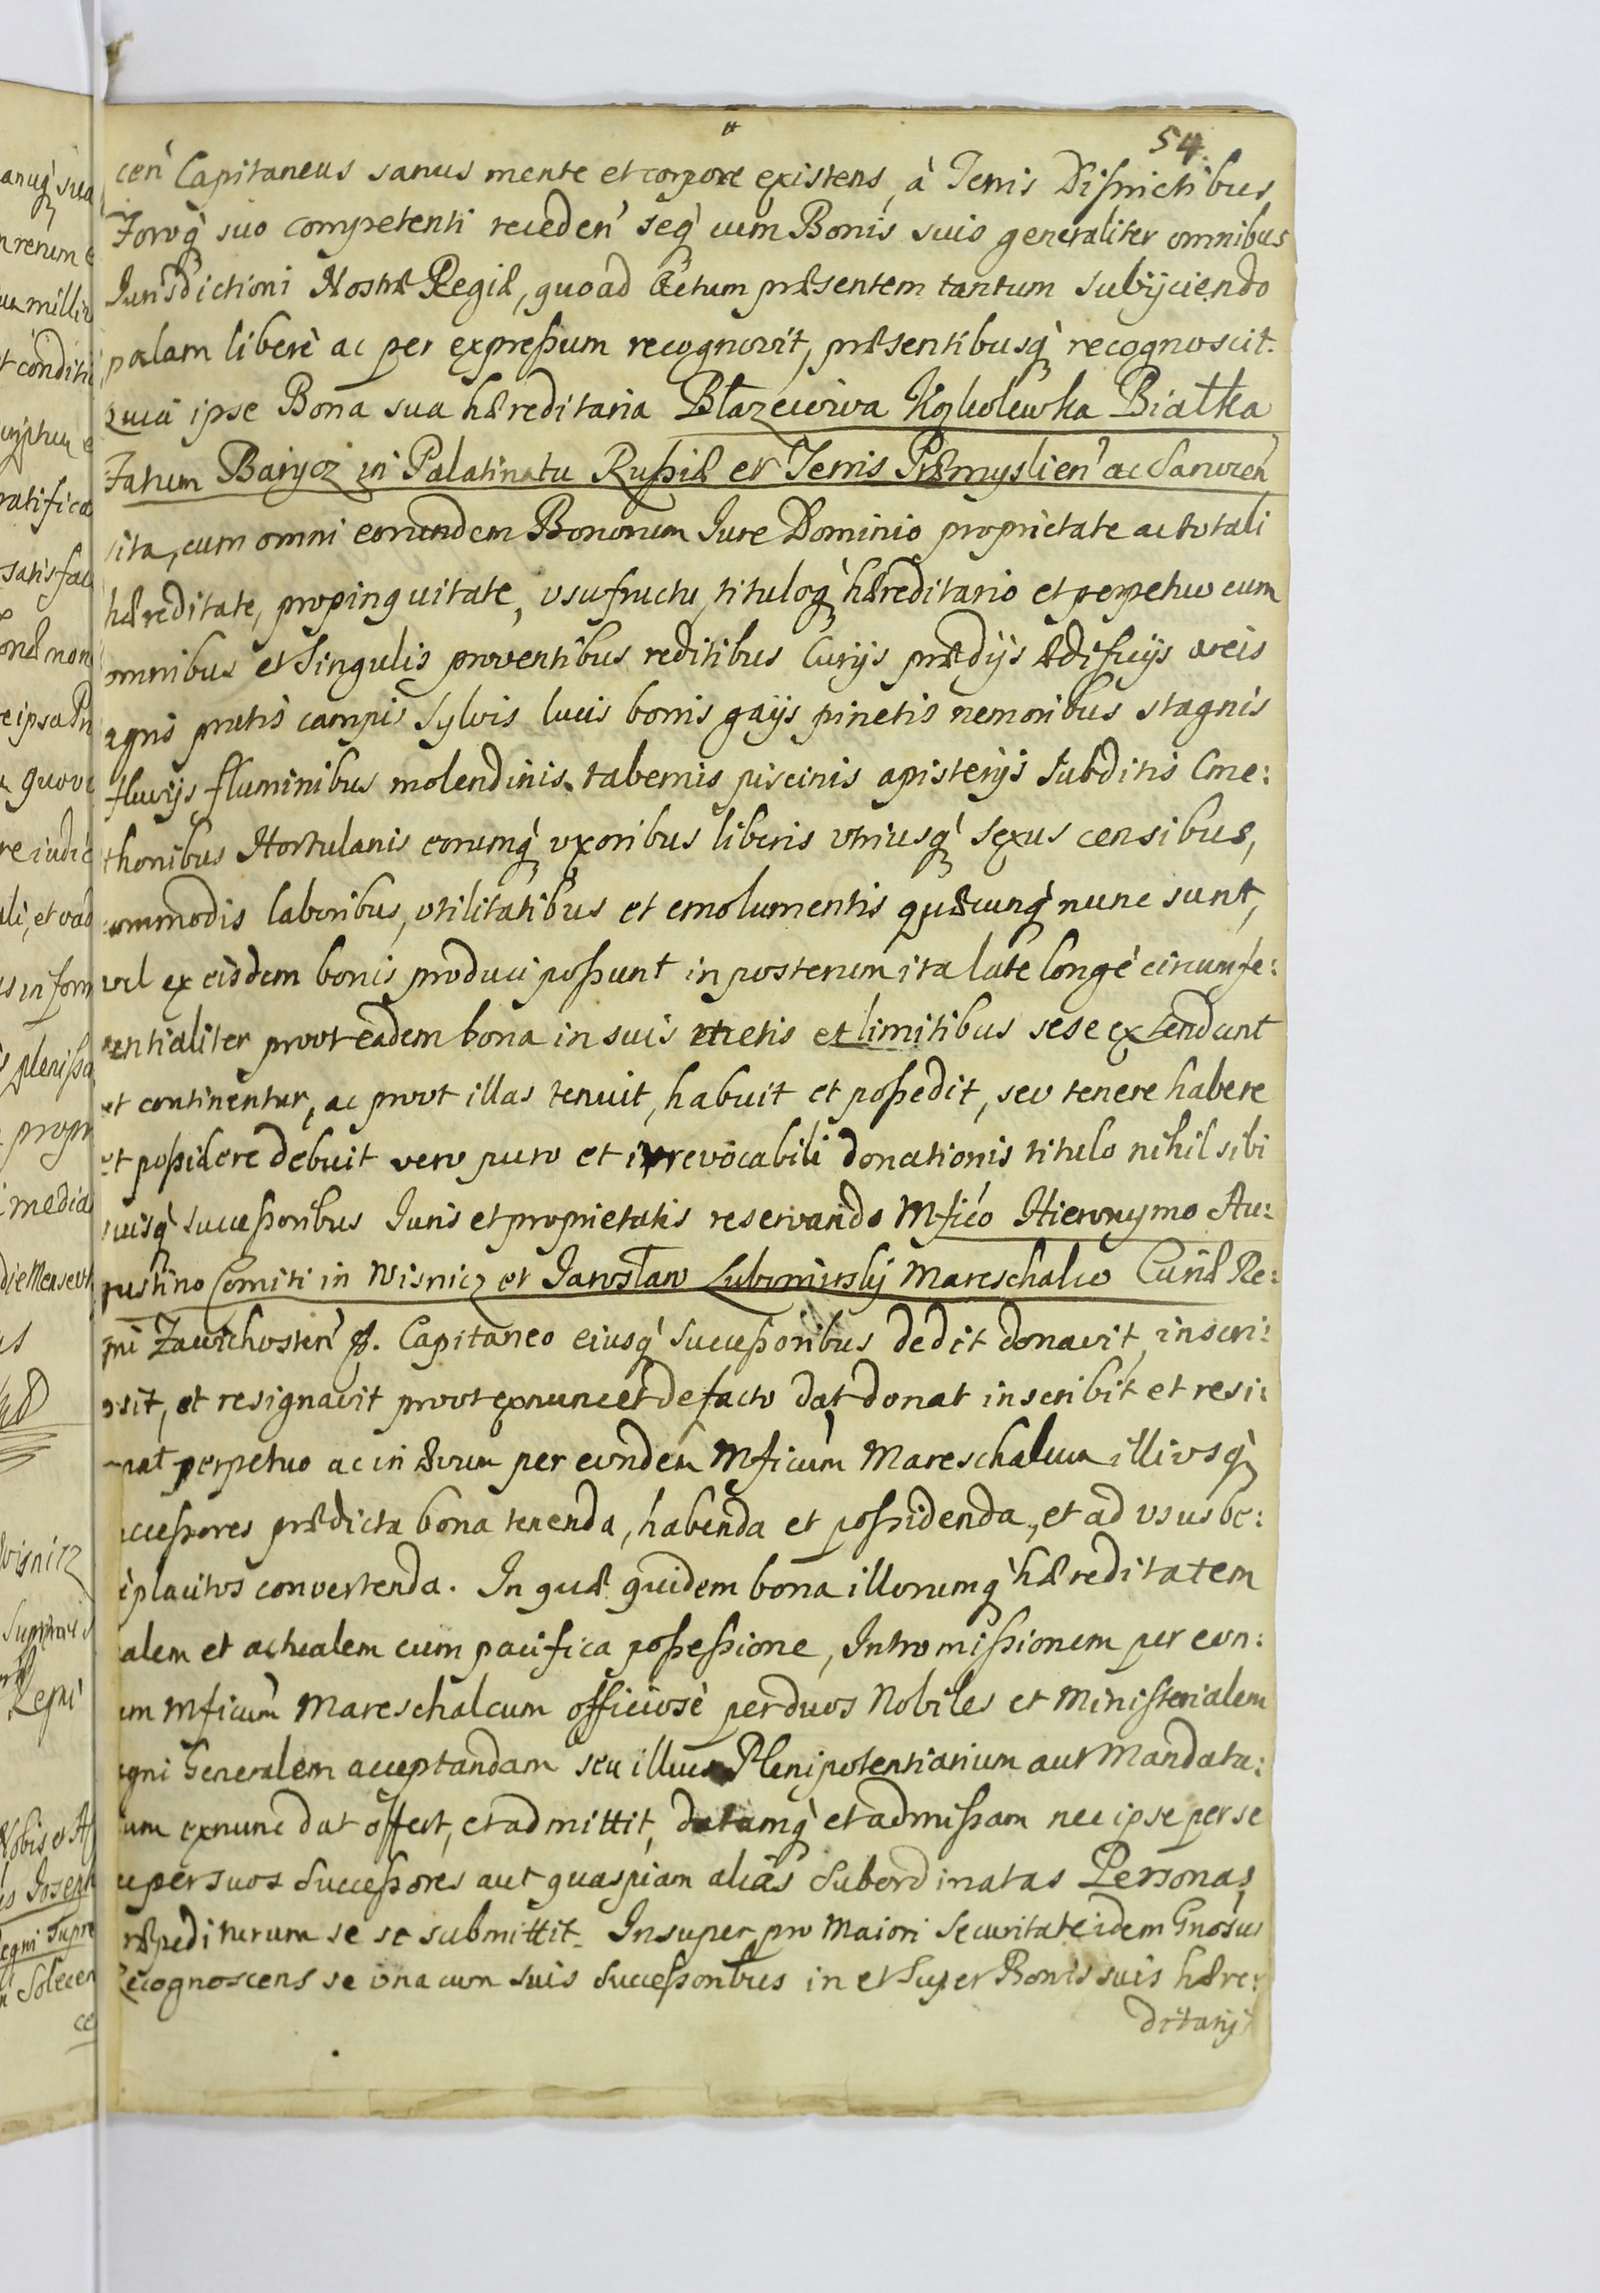 54.
cen̄ Capitaneus sanus mente et corpore existens, à Terris Districtibus,
Foroq̀ suo competenti receden̄ seq̀ cum Bonis suis generaliter omnibus
Jurisdictioni Nostræ Regiæ, quoad Actum præsentem tantum subijciendo
palam liberè ac per expreßum recognovit, præsentibusq̀ recognoscit.
Quià ipse Bona sua hæreditaria Błazeiowa Kozłolewka Białka
Fatum Barycz in Palatinatu Rußiæ et Terris Præmyslien̄ ac Sanocen̄
sita, cum omni eorundem Bonorum Jure Dominio proprietate ac totali
hæreditate, propinquitate, usufructu, tituloq̀ hæreditario et perpetuo cum
omnibus et singulis proventibus reditibus Curijs prædijs ædificijs areis
agris pratis campis sylvis lucis borris gaijs pinetis nemoribus stagnis
fluvijs fluminibus molendinis tabernis piscinis apisterijs subditis Cme:
thonibus Hortulanis eorumq̀ uxoribus liberis utriusq̀ sexus censibus,
commodis laboribus, utilitatibus et emolumentis quæcunq̀ nunc sunt,
vel ex eisdem bonis produci poßunt in posterum ita latè longè circumfe:
rentialiter proot eadem bona in suis metis et limitibus sese extendunt
et continentur, ac proot illas tenuit, habuit et poßedit, seu tenere habere
et poßidere debuit vero puro et irrevocabili donationis titulo nihil sibi
suisq̀ succeßoribus Juris et proprietatis reservando Mfico Hieronymo Au:
gustino Comiti in Wisnicz et Jarosław Lubomirskij Mareschalco Curiæ Re:
gni Zawichosten̄ p. Capitaneo eiusq̀ succeßoribus dedit donavit, inscri:
psit, et resignavit proot exnunc et de facto dat donat inscribit et resi:
gnat perpetuo ac in ævum per eundem Mficum Mareschalcum illiusq̀
succeßores prædicta bona tenenda, habenda et poßidenda, et ad usus be:
neplacitos convertenda. In quæ quidem bona illorumq̀ hæreditatem
alem et actualem cum pacifica poßeßione, Intromißionem per eun:
em Mficum Mareschalcum officiosè per duos Nobiles et Ministerialem
egni Generalem acceptandam seu illius Plenipotentiarium aut Mandata:
um exnunc dat offert, et admittit, datamq̀ et admißam nec ipse per se
e per suos Succeßores aut quaspiam alias Subordinatas Personas
ræpediturum se se submittit. Insuper pro Maiori securitate idem Gnosus
recognoscens se una cum suis Succeßoribus in et super Bonis suis hære:
ditarijs